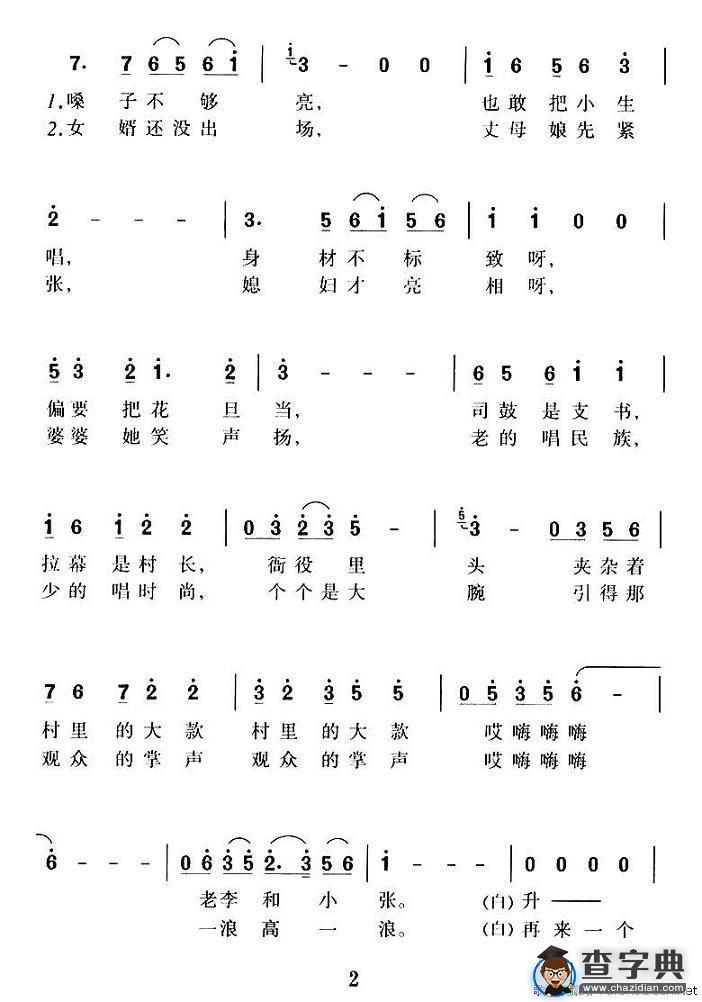 7. 7 6 5 6 1 | 1 3 - 0 0 | 1 6 5 6 3 |
1.嗓 子 不 够 亮, 也 敢 把 小 生
2.女 婿 还 没 出 场, 丈 母 娘 先 紧
2 - - - | 3. 5 6 1 5 6 | 1 1 0 0 |
唱, 身 材 不 标 致 呀,
张, 媳 妇 才 亮 相 呀,
5 3 2 1. 2 | 3 - - - | 6 5 6 1 1 |
偏 要 把 花 旦 当, 司 鼓 是 支 书,
婆 婆 她 笑 声 扬, 老 的 唱 民 族,
1 6 1 2 2 | 0 3 2 3 5 - | 5 3 - 0 3 5 6 |
拉 幕 是 村 长, 衙 役 里 头 夹 杂 着
少 的 唱 时 尚, 个 个 是 大 腕 引 得 那
7 6 7 2 2 | 3 2 3 5 5 | 0 5 3 5 6 - |
村 里 的 大 款 村 里 的 大 款 哎 嗨 嗨 嗨
观 众 的 掌 声 观 众 的 掌 声 哎 嗨 嗨 嗨
6 - - - | 0 6 3 5 2. 3 5 6 | 1 - - - | 0 0 0 0 |
老 李 和 小 张。 (白) 升 ——
一 浪 高 一 浪。 (白) 再 来 一 个
2
查字典
www.chazidian.com